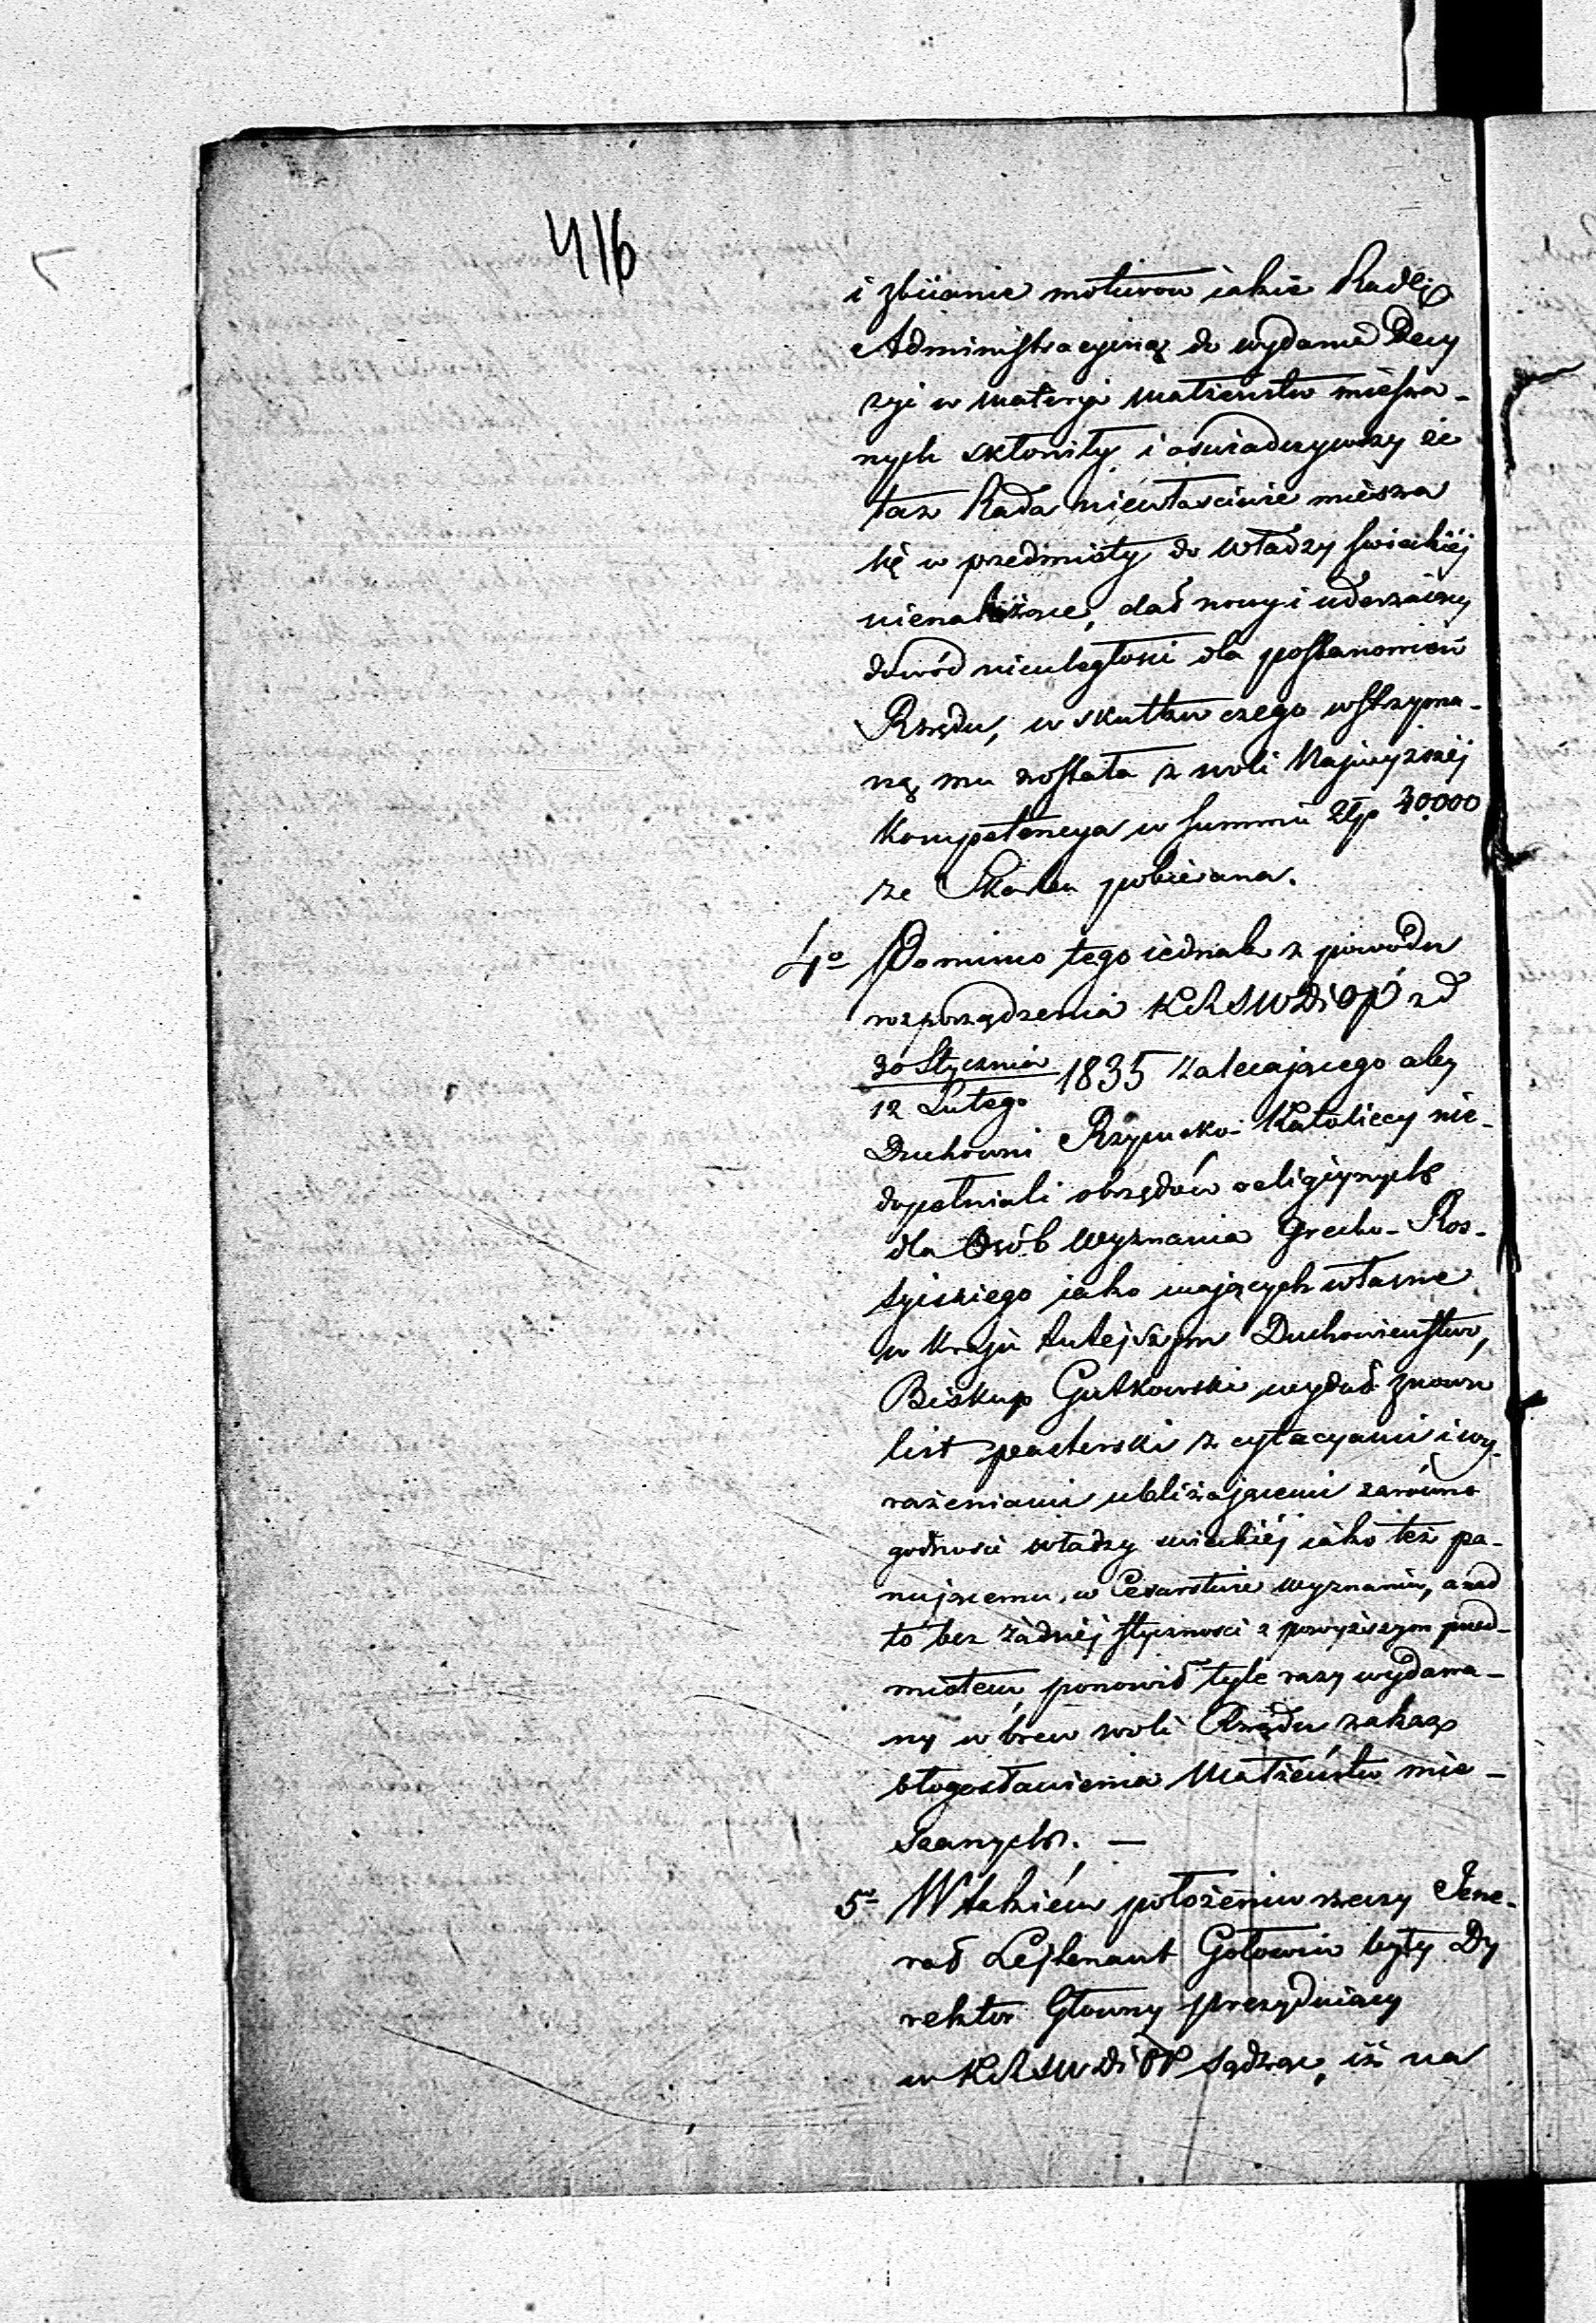 416
i zbiianie motivow iakie Radę
Administracyiną do wydania Decy
zyi w materyi małżeństw miesza-
nych skłoniły i oświadczywszy że
taż Rada niewłaściwie miesza
się w przedmioty do władzy świeckiéj
nienależące, dał nowy i uderzaiący
dowód nieuległości dla postanowień
Rządu, w skutku czego wstrzyma-
ną mu została z woli Najwyższéj
Kompetencya w summie Złp
ze Skarbu pobierana.
4o Pomimo tego iednak z powodu
rozporządzenia KRSWDiOP zd
30 Stycznia
12 Lutego 1835 zalecającego aby
Duchowni Rzymsko-Katoliccy nie-
dopełniali obrzędów religiynych
dla Osób wyznania Grecko-Ros-
syiskiego iako mających własne
w Kraju tutejszym Duchowieństwo,
Biskup Gutkowski wydał znowu
list pasterski z cytacyami i wy-
rażeniami ubliżającemi zarówno
godności władzy świeckiéj iako też pa-
nującemu w Cesarstwie wyznaniu, a nad
to bez żadnéj styczności z powyższym przed-
miotem, ponowił tyle razy wydawa-
ny wbrew woli Rządu zakaz
błogosławienia Małżeństw mie-
szanych. —
5o W takiém położeniu rzeczy Jene-
rał Lejtenant Gołowin były Dy
rektor Głowny prezyduiący
w KRSWDiOP sądząc, iż na